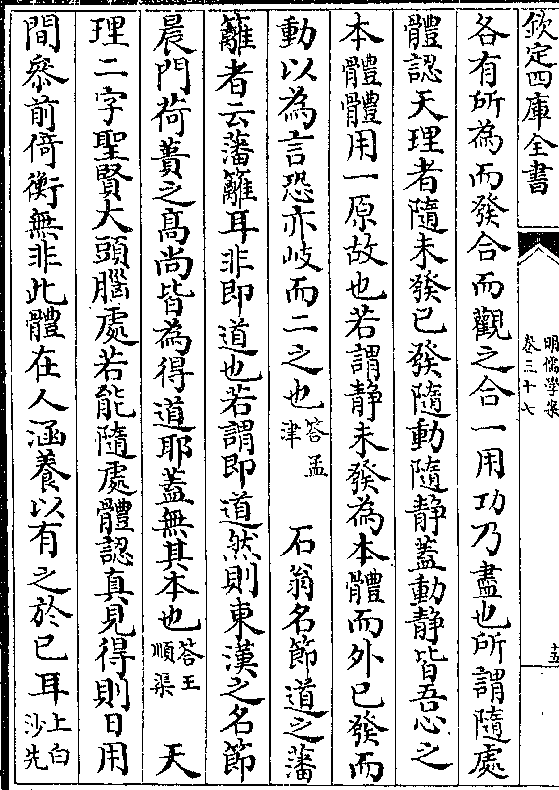 欽定四庫全書
明儒學案
卷三十七
十五
各有所為而發合而觀之合一用功乃盡也所謂隨處
體認天理者隨未發已發隨動隨静蓋動静皆吾心之
本體體用一原故也若謂静未發為本體而外已發而
動以為言恐亦岐而二之也答孟津 石翁名節道之藩
籬者云藩籬耳非即道也若謂即道然則東漢之名節
晨門荷蕢之髙尚皆為得道耶蓋無其本也答王順渠 天
理二字聖賢大頭腦處若能隨處體認真見得則日用
間叅前倚衡無非此體在人涵養以有之於已耳上白沙先